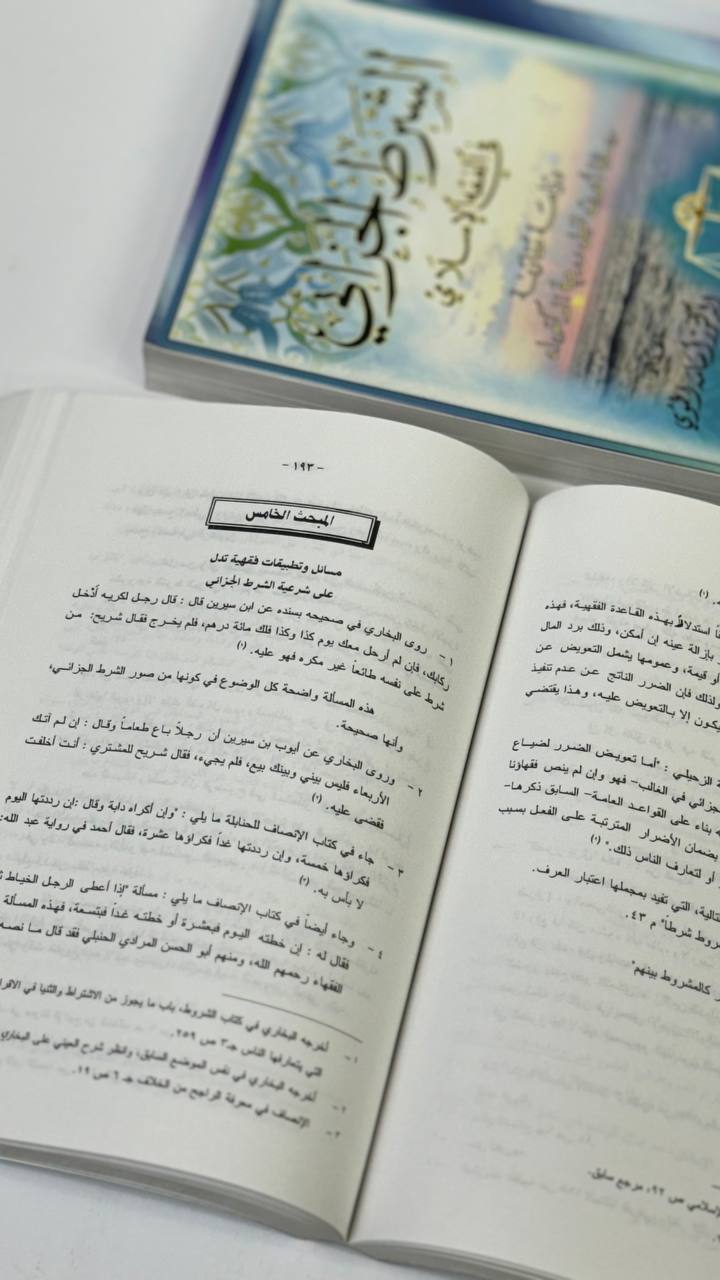 الشرط الجزائي
في الفقه الإسلامي
دراسة مقارنة
- ١٩٣ -
المبحث الخامس
مسائل وتطبيقات فقهية تدل
على شرعية الشرط الجزائي
١ - روى البخاري في صحيحه بسنده عن ابن سيرين قال : قال رجل لكريه أدْخل
ركابك، فإن لم أرحل معك يوم كذا وكذا فلك مائة درهم، فلم يخرج فقال شريح: من
شرط على نفسه طائعاً غير مكره فهو عليه. (١)
هذه المسألة واضحة كل الوضوع في كونها من صور الشرط الجزائي،
وأنها صحيحة.
٢ - وروى البخاري عن أيوب بن سيرين أن رجلاً باع طعاماً وقال : إن لم آتك
الأربعاء فليس بيني وبينك بيع، فلم يجيء، فقال شريح للمشتري : أنت أخلفت
فقضى عليه. (٢)
٣ - جاء في كتاب الإنصاف للحنابلة ما يلي : "وإن أكراه دابة وقال :إن رددتها اليوم
فكراؤها خمسة، وإن رددتها غداً فكراؤها عشرة، فقال أحمد في رواية عبد الله:
لا بأس به. (٣)
٤ - وجاء أيضاً في كتاب الإنصاف ما يلي : مسألة "إذا أعطى الرجل الخياط
فقال له : إن خطته اليوم فبعشرة أو خطته غداً فبتسعة، فهذه المسألة
الفقهاء رحمهم الله، ومنهم أبو الحسن المرادي الحنبلي فقد قال ما نصه
١ - أخرجه البخاري في كتاب الشروط، باب ما يجوز من الاشتراط والثنيا في
التي يتعارفها الناس جـ٣ ص ٢٥٩.
٢ - أخرجه البخاري في نفس الموضع السابق، وانظر شرح العيني على البخاري
٣ - الإنصاف في معرفة الراجح من الخلاف جـ ٦ ص ١٩.
(١)
استدلال بهذه القاعدة الفقهية، فهذه
بإزالة عينه إن أمكن، وذلك برد المال
أو قيمة، وعمومها يشمل التعويض عن
ولذلك فإن الضرر الناتج عن عدم تنفيذ
يكون إلا بالتعويض عليه، وهذا يقتضي
الزحيلي : "أما تعويض الضرر لضياع
جزائي في الغالب- فهو وإن لم ينص فقهاؤنا
بناء على القواعد العامة- السابق ذكرها-
بضمان الأضرار المترتبة على الفعل بسبب
أو لتعارف الناس ذلك." (١)
التي تفيد بمجملها اعتبار العرف.
شرطاً" م ٤٣.
كالمشروط بينهم"
ص ٩٢، مرجع سابق.